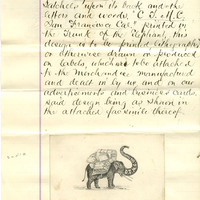 Satchels upon its back and the
letters and words "C. T. M. C.
San Francisco Cal." printed in
the Trunk of the Elephant, this
design is to be printed, lithographed
or otherwise drawn or produced
on labels, which are to be attached
to the merchandise manufactured
and dealt in by us and on our
advertisements and business cards,
said design being as shown in
the attached fac simile thereof.